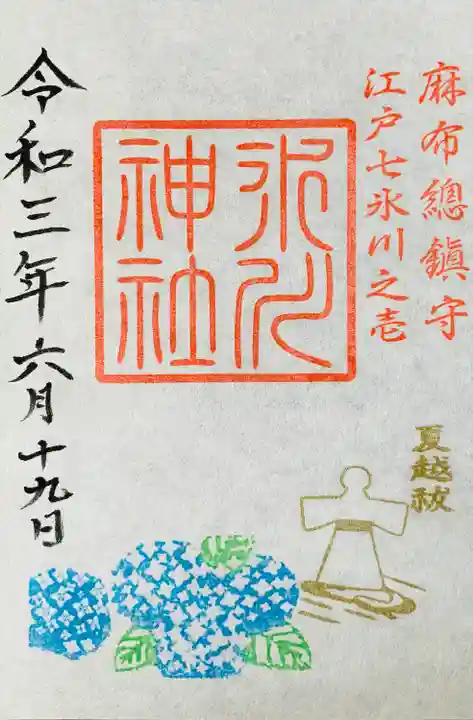 麻布總鎮守
江戸七氷川之壱
氷川
神社
夏越祓
令和三年六月十九日